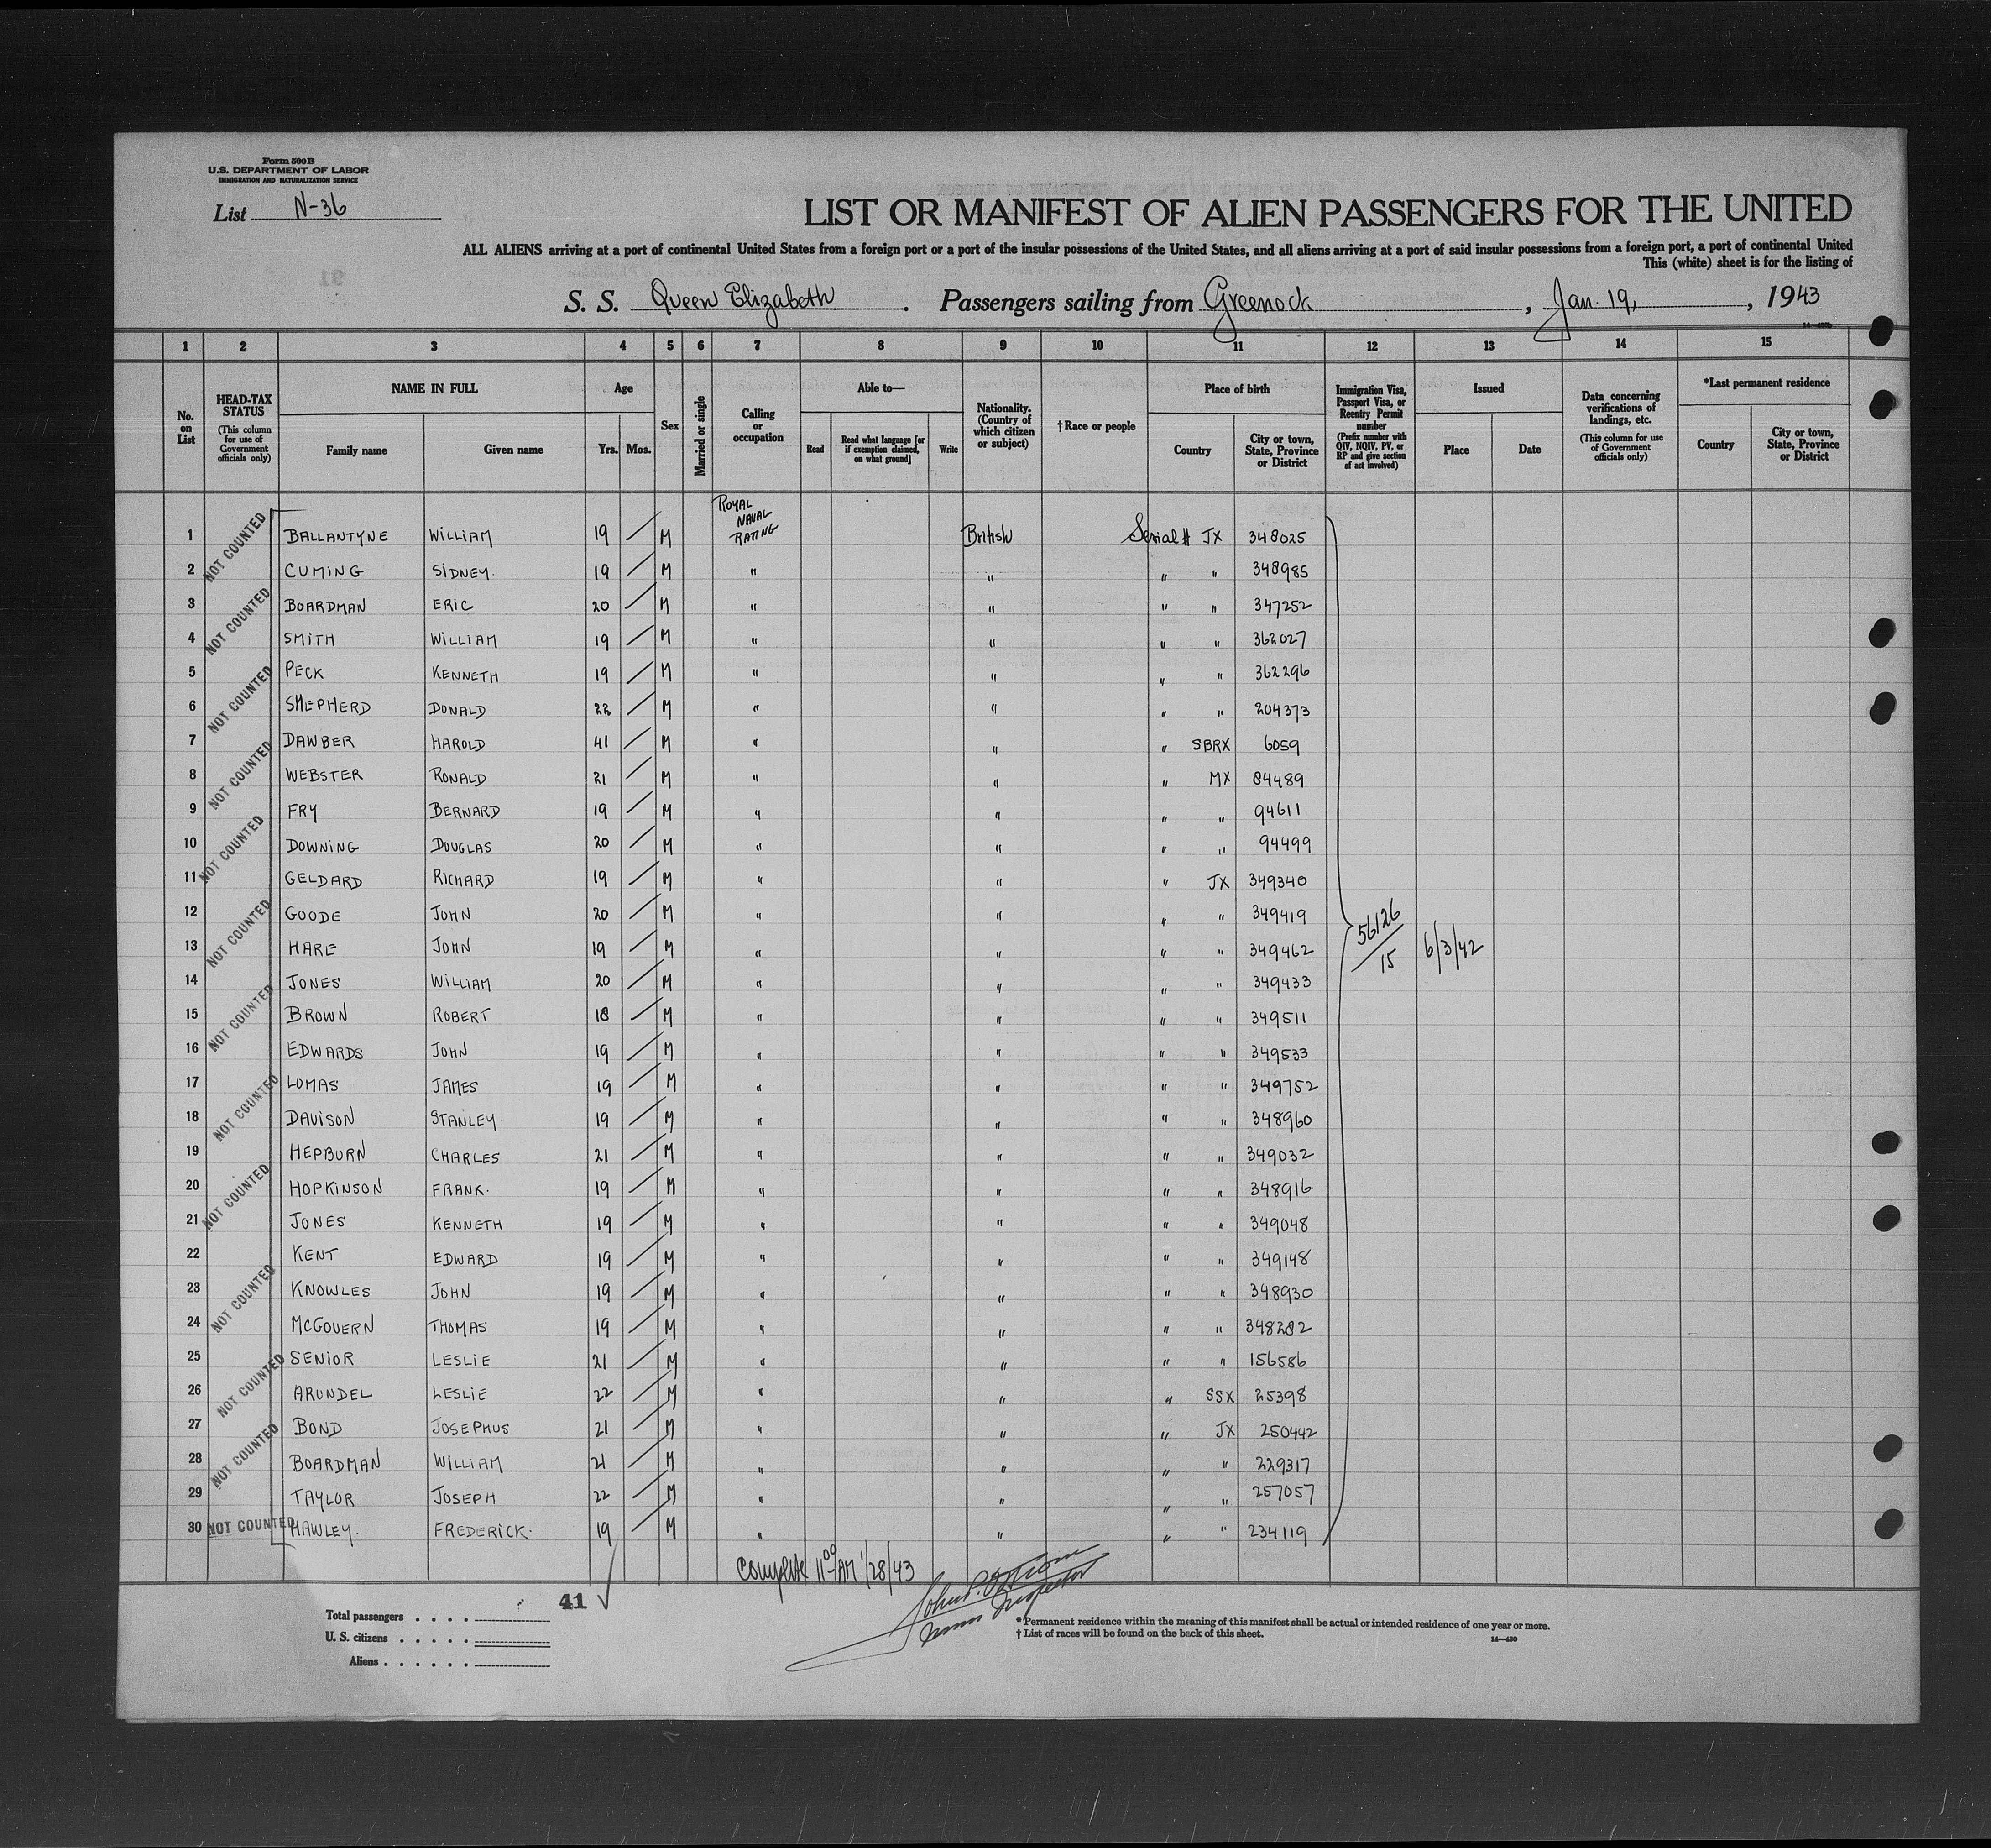 Form 500 B
U.S. DEPARTMENT OF LABOR
IMMIGRATION AND NATURALIZATION SERVICE
List N-36
LIST OR MANIFEST OF ALIEN PASSENGERS FOR THE UNITED
ALL ALIENS arriving at a port of continental United States from a foreign port or a port of the insular possessions of the United States, and all aliens arriving at a port of said insular possessions from a foreign port, a port of continental United
This (white) sheet is for the listing of
91
S. S. Queen Elizabeth. Passengers sailing from Greenock, Jan. 19, 1943
1 2 3 4 5 6 7 8 9 10 11 12 13 14 15
No. on List
HEAD-TAX STATUS (This column for use of Government officials only)
NAME IN FULL Family name Given name
Age Yrs. Mos.
Sex
Married or single
Calling or occupation
Able to— Read Read what language [or if exemption claimed, on what ground] Write
Nationality. (Country of which citizen or subject)
†Race or people
Place of birth Country City or town, State, Province or District
Immigration Visa, Passport Visa, or Reentry Permit number (Prefix number with QIV, NQIV, PV, or RP and give section of act involved)
Issued Place Date
Data concerning verifications of landings, etc. (This column for use of Government officials only)
*Last permanent residence Country City or town, State, Province or District
1 NOT COUNTED BALLANTYNE WILLIAM 19 / M ROYAL NAVAL RATING British Serial # JX 348025
2 CUMING SIDNEY. 19 / M " " " " 348985
3 NOT COUNTED BOARDMAN ERIC 20 / M " " " " 347252
4 SMITH WILLIAM 19 / M " " " " 362027
5 PECK KENNETH 19 / M " " " " 362296
6 NOT COUNTED SHEPHERD DONALD 22 / M " " " " 204373
7 DAWBER HAROLD 41 / M " " " SBRX 6059
8 NOT COUNTED WEBSTER RONALD 21 / M " " " MX 84489
9 FRY BERNARD 19 / M " " " " 94611
10 NOT COUNTED DOWNING DOUGLAS 20 / M " " " " 94499
11 GELDARD RICHARD 19 / M " " " JX 349340
12 GOODE JOHN 20 / M " " " " 349419
13 NOT COUNTED HARE JOHN 19 / M " " " " 349462 56126/15 6/3/42
14 JONES WILLIAM 20 / M " " " " 349433
15 NOT COUNTED BROWN ROBERT 18 / M " " " " 349511
16 EDWARDS JOHN 19 / M " " " " 349533
17 LOMAS JAMES 19 / M " " " " 349752
18 NOT COUNTED DAVISON STANLEY. 19 / M " " " " 348960
19 HEPBURN CHARLES 21 / M " " " " 349032
20 NOT COUNTED HOPKINSON FRANK. 19 / M " " " " 348916
21 JONES KENNETH 19 / M " " " " 349048
22 KENT EDWARD 19 / M " " " " 349148
23 NOT COUNTED KNOWLES JOHN 19 / M " " " " 348930
24 McGOVERN THOMAS 19 / M " " " " 348282
25 SENIOR LESLIE 21 / M " " " " 156586
26 NOT COUNTED ARUNDEL LESLIE 22 / M " " " SSX 25398
27 BOND JOSEPHUS 21 / M " " " JX 250442
28 NOT COUNTED BOARDMAN WILLIAM 21 / M " " " " 229317
29 TAYLOR JOSEPH 22 / M " " " " 257057
30 NOT COUNTED HAWLEY. FREDERICK. 19 / M " " " " 234119
Complete 11:00 AM 1/28/43
41 ✓
Total passengers
U. S. citizens
Aliens
* Permanent residence within the meaning of this manifest shall be actual or intended residence of one year or more.
† List of races will be found on the back of this sheet.
14—430